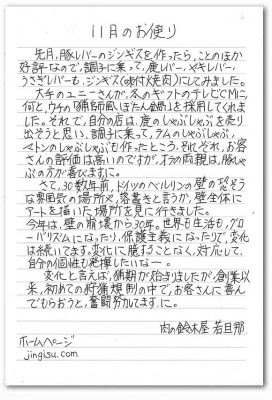 11月のお便り
先月、豚レバーのジンギスを作ったら、ことのほか
好評なので、調子に乗って、鹿レバー、メキレバー、
うさぎレバーも、ジンギス(味付焼肉)にしてみました。
大手のユニーさんが、冬のギフトのテレビCMに
何と、ウチの「猟師風ぼたん鍋」を採用してくれま
した。それで、自分の店は、鹿のしゃぶしゃぶを売り
出そうと思い、調子に乗って、ラムのしゃぶしゃぶ、
マトンのしゃぶしゃぶも作ったところ、それぞれ、お客
さんの評価は高いのですが、オラの両親は、豚しゃ
ぶの方が喜びますに。
さて、30数年前、ドイツのベルリンの壁の
な雰囲気の場所や、落書きと言うか、壁全体に
アートを描いた場所を見に行きました。
今年は、壁の崩壊から30年。世界も生活も、グロ
ーバリズムになったり、保護主義になったりで、変化
は続いてます。変化に臆することなく、対応して、
自分の個性も発揮したいなー。
変化と言えば、猟期が始まりましたが、創業以
来、初めての狩猟規制の中で、お客さんに喜ん
でもらおうと、奮闘努力してますに。
肉の鈴木屋 若旦那
ホームページ
jingisu.com